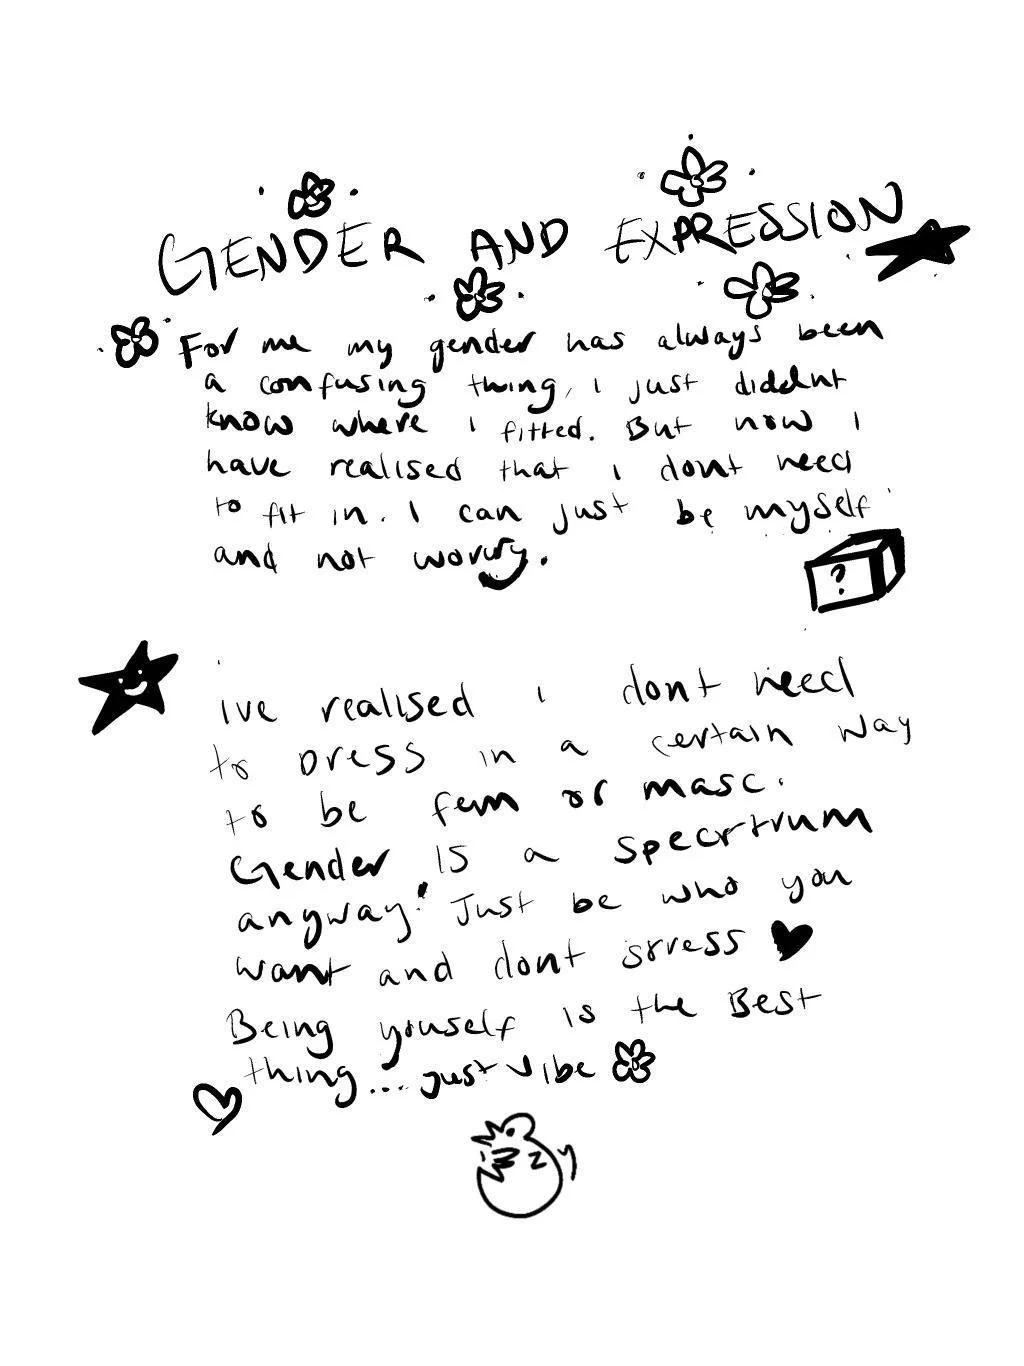 GENDER AND EXPRESSION
For me my gender has always been
a confusing thing, i just diddnt
know where i fitted. But now i
have realised that i dont need
to fit in. I can just be myself
and not worry.
?
ive realised i dont need
to Dress in a certain way
to be fem or masc.
Gender is a specrtrum
anyway! Just be who you
want and dont stress
Being youself is the Best
thing... just vibe